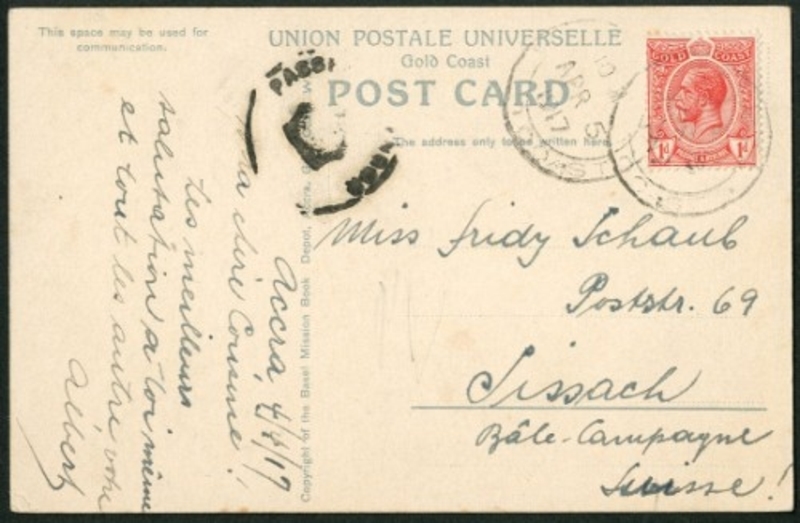 This space may be used for
communication.
UNION POSTALE UNIVERSELLE
Gold Coast
POST CARD
The address only to be written here.
GOLD COAST
1d 1d
APR 5
17
PASS
Copyright of the Basel Mission Book Depot, Accra, G
Accra, 4/4/17
Ma chère Cousine!
Les meilleurs
salutation à toi même
et tout les autre votre
Albert
Miss Fridy Schaub
Poststr. 69
Sissach
Bâle-Campagne
Suisse!